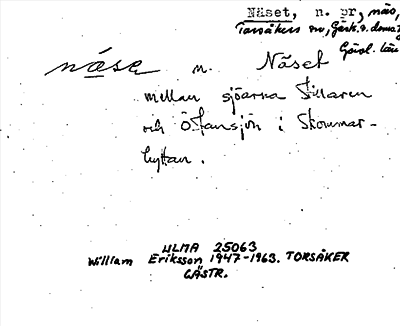 Näset, n. pr, näs,
Torsåkers sn, Gästr. o. denna
Gävl. län
näse n. Näset
mellan sjöarna Tillaren
och Ottansjön i Skommar-
hyttan.
ULMA 25063
William Eriksson 1947-1963. TORSÅKER
GÄSTR.